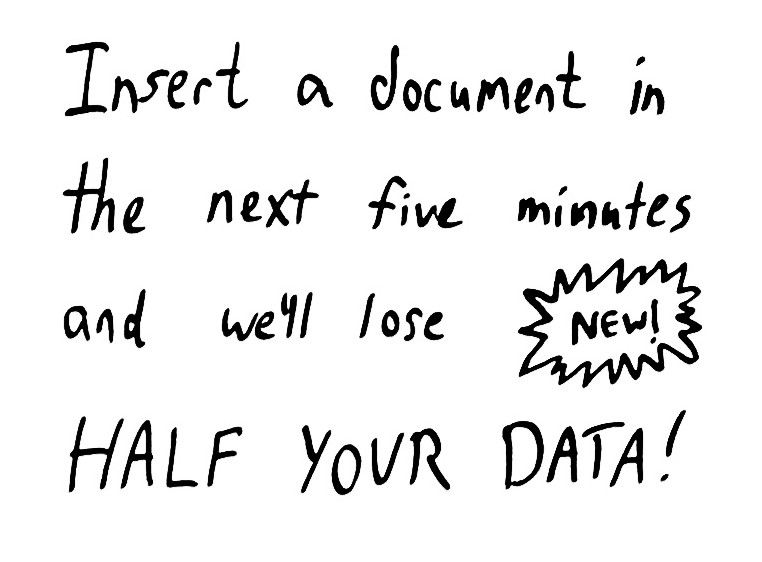 Insert a document in
the next five minutes
and we'll lose NEW!
HALF YOUR DATA!